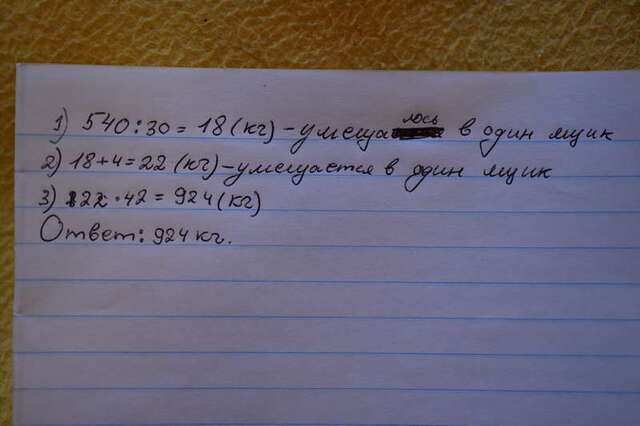 1) 540:30 = 18 (кг) - умещалось в один ящик
2) 18+4=22 (кг) - умещается в один ящик
3) 22·42 = 924 (кг)
Ответ: 924 кг.